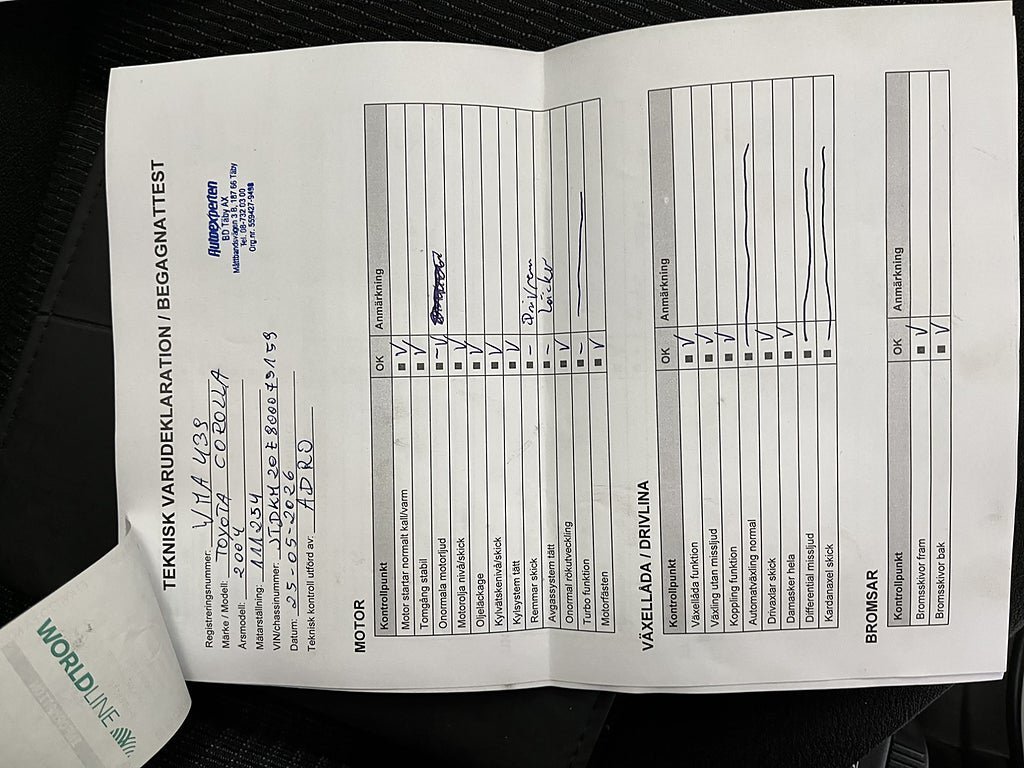 WORLDLINE
TEKNISK VARUDEKLARATION / BEGAGNATTEST
Autoexperten
BD Täby AX
Måttbandsvägen 3 B, 187 66 Täby
Tel. 08-732 03 00
Org.nr. 559427-9498
Registreringsnummer: VMA 439
Märke / Modell: TOYOTA COROLLA
Årsmodell: 2004
Mätarställning: 111234
VIN/chassinummer:
Datum: 25-05-2026
Teknisk kontroll utförd av: ADRO
MOTOR
Kontrollpunkt OK Anmärkning
Motor startar normalt kall/varm ■ √
Tomgång stabil ■ √
Onormala motorljud ■ – √
Motorolja nivå/skick ■ √
Oljeläckage ■ √
Kylvätskenivå/skick ■ √
Kylsystem tätt ■ √
Remmar skick ■ – Drivrem
Avgassystem tätt ■ – Läcker
Onormal rökutveckling ■ √
Turbo funktion ■ –
Motorfästen ■ √
VÄXELLÅDA / DRIVLINA
Kontrollpunkt OK Anmärkning
Växellåda funktion ■ √
Växling utan missljud ■ √
Koppling funktion ■ √
Automatväxling normal ■
Drivaxlar skick ■ √
Damasker hela ■ √
Differential missljud ■
Kardanaxel skick ■
BROMSAR
Kontrollpunkt OK Anmärkning
Bromsskivor fram ■ √
Bromsskivor bak ■ √